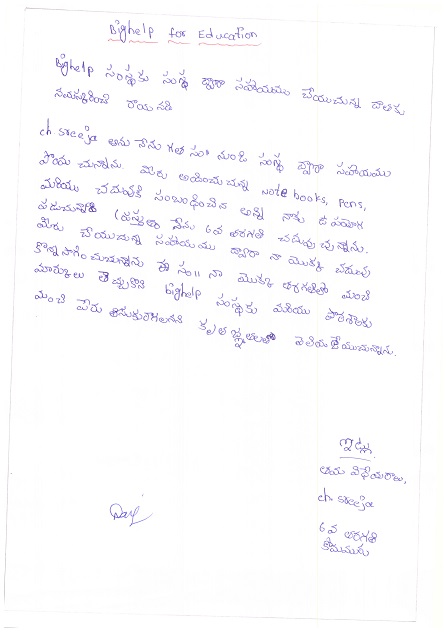 Bighelp for Education
Bighelp సంస్థకు సంస్థ ద్వారా సహాయము చేయుచున్న దాతకు
నమస్కరించి రాయునది
ch. sreeja అను నేను గత సం॥ నుండి సంస్థ ద్వారా సహాయము
పొందు చున్నాను. మీరు అందించుచున్న Note books, pens,
మరియు చదువుకి సంబంధించిన అన్ని నాకు ఉపయోగ
పడుచున్నాయి ప్రస్తుతం నేను 6వ తరగతి చదువు చున్నాను.
మీరు చేయుచున్న సహాయము ద్వారా నా యొక్క చదువు
కొనసాగించుచున్నాను ఈ సం॥ నా యొక్క తరగతిలో మంచి
మార్కులు తెచ్చుకొని Bighelp సంస్థకు మరియు పాఠశాలకు
మంచి పేరు తీసుకురాగలనని కృతజ్ఞతలతో తెలియజేయుచున్నాను.
ఇట్లు
తమ విధేయురాలు,
ch. sreeja
6 వ తరగతి
కొమమురు